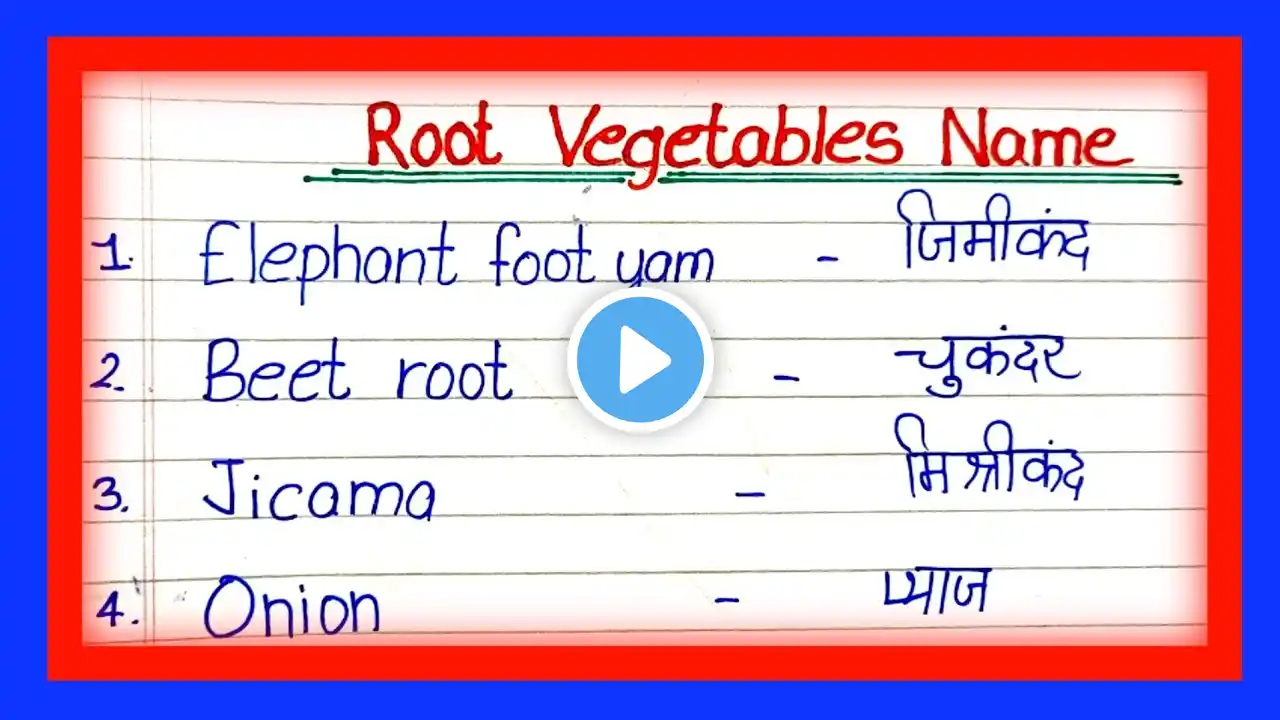 Root Vegetables Name
1. Elephant foot yam - जिमीकंद
2. Beet root - चुकंदर
3. Jicama - मिश्रीकंद
4. Onion - प्याज